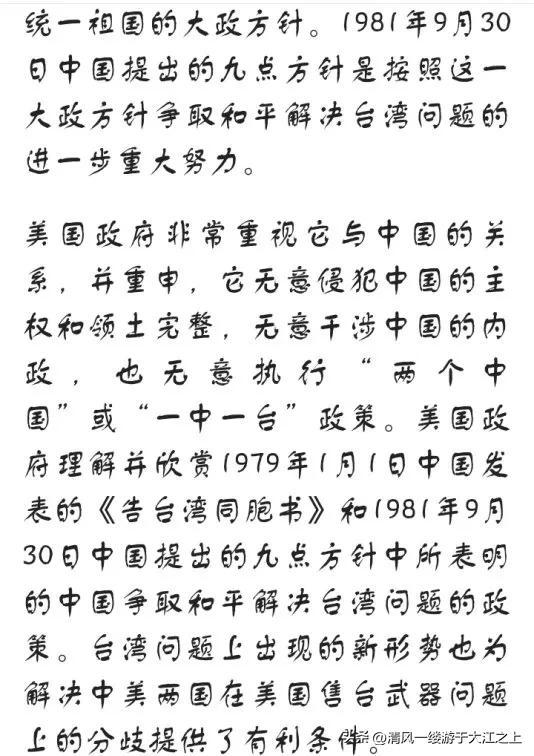 统一祖国的大政方针。1981年9月30
日中国提出的九点方针是按照这一
大政方针争取和平解决台湾问题的
进一步重大努力。
美国政府非常重视它与中国的关
系，并重申，它无意侵犯中国的主
权和领土完整，无意干涉中国的内
政，也无意执行“两个中
国”或“一中一台”政策。美国政
府理解并欣赏1979年1月1日中国发
表的《告台湾同胞书》和1981年9月
30日中国提出的九点方针中所表明
的中国争取和平解决台湾问题的政
策。台湾问题上出现的新形势也为
解决中美两国在美国售台武器问题
上的分歧提供了有利条件。
头条@清风一缕游于大江之上